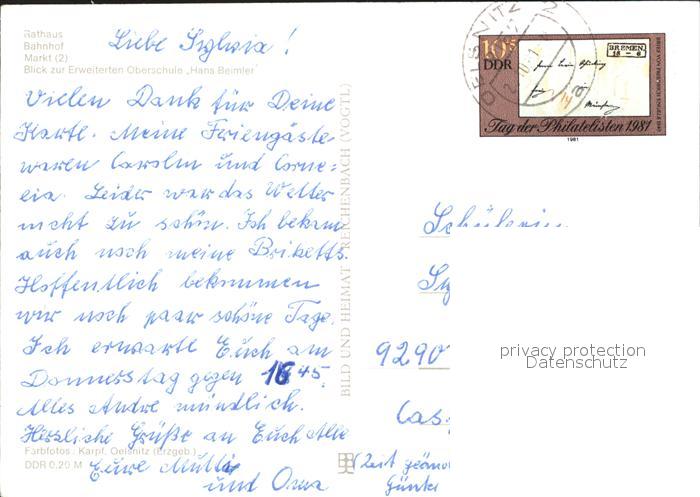 Rathaus
Bahnhof
Markt (2)
Blick zur Erweiterten Oberschule „Hans Beimler"
Liebe Sylvia!
Vielen Dank für Deine
Karte. Meine Feriengäste
waren Carolin und Corne=
lia. Leider war das Wetter
nicht zu schön. Ich bekam
auch noch meine Briketts.
Hoffentlich bekommen
wir noch paar schöne Tage.
Ich erwarte Euch am
Donnerstag gegen 16 45.
Alles Andre mündlich.
Herzliche Grüße an Euch Alle
Farbfotos: Karpf, Oelsnitz (Erzgeb.)
DDR 0,20 M
Eure Mutti
und Oma
BILD UND HEIMAT REICHENBACH (VOGTL)
OELSNITZ 2
10+5
DDR
BREMEN
Tag der Philatelisten 1981
1981
Schülerin
Sy
9290
privacy protection
Datenschutz
(Zeit geänd